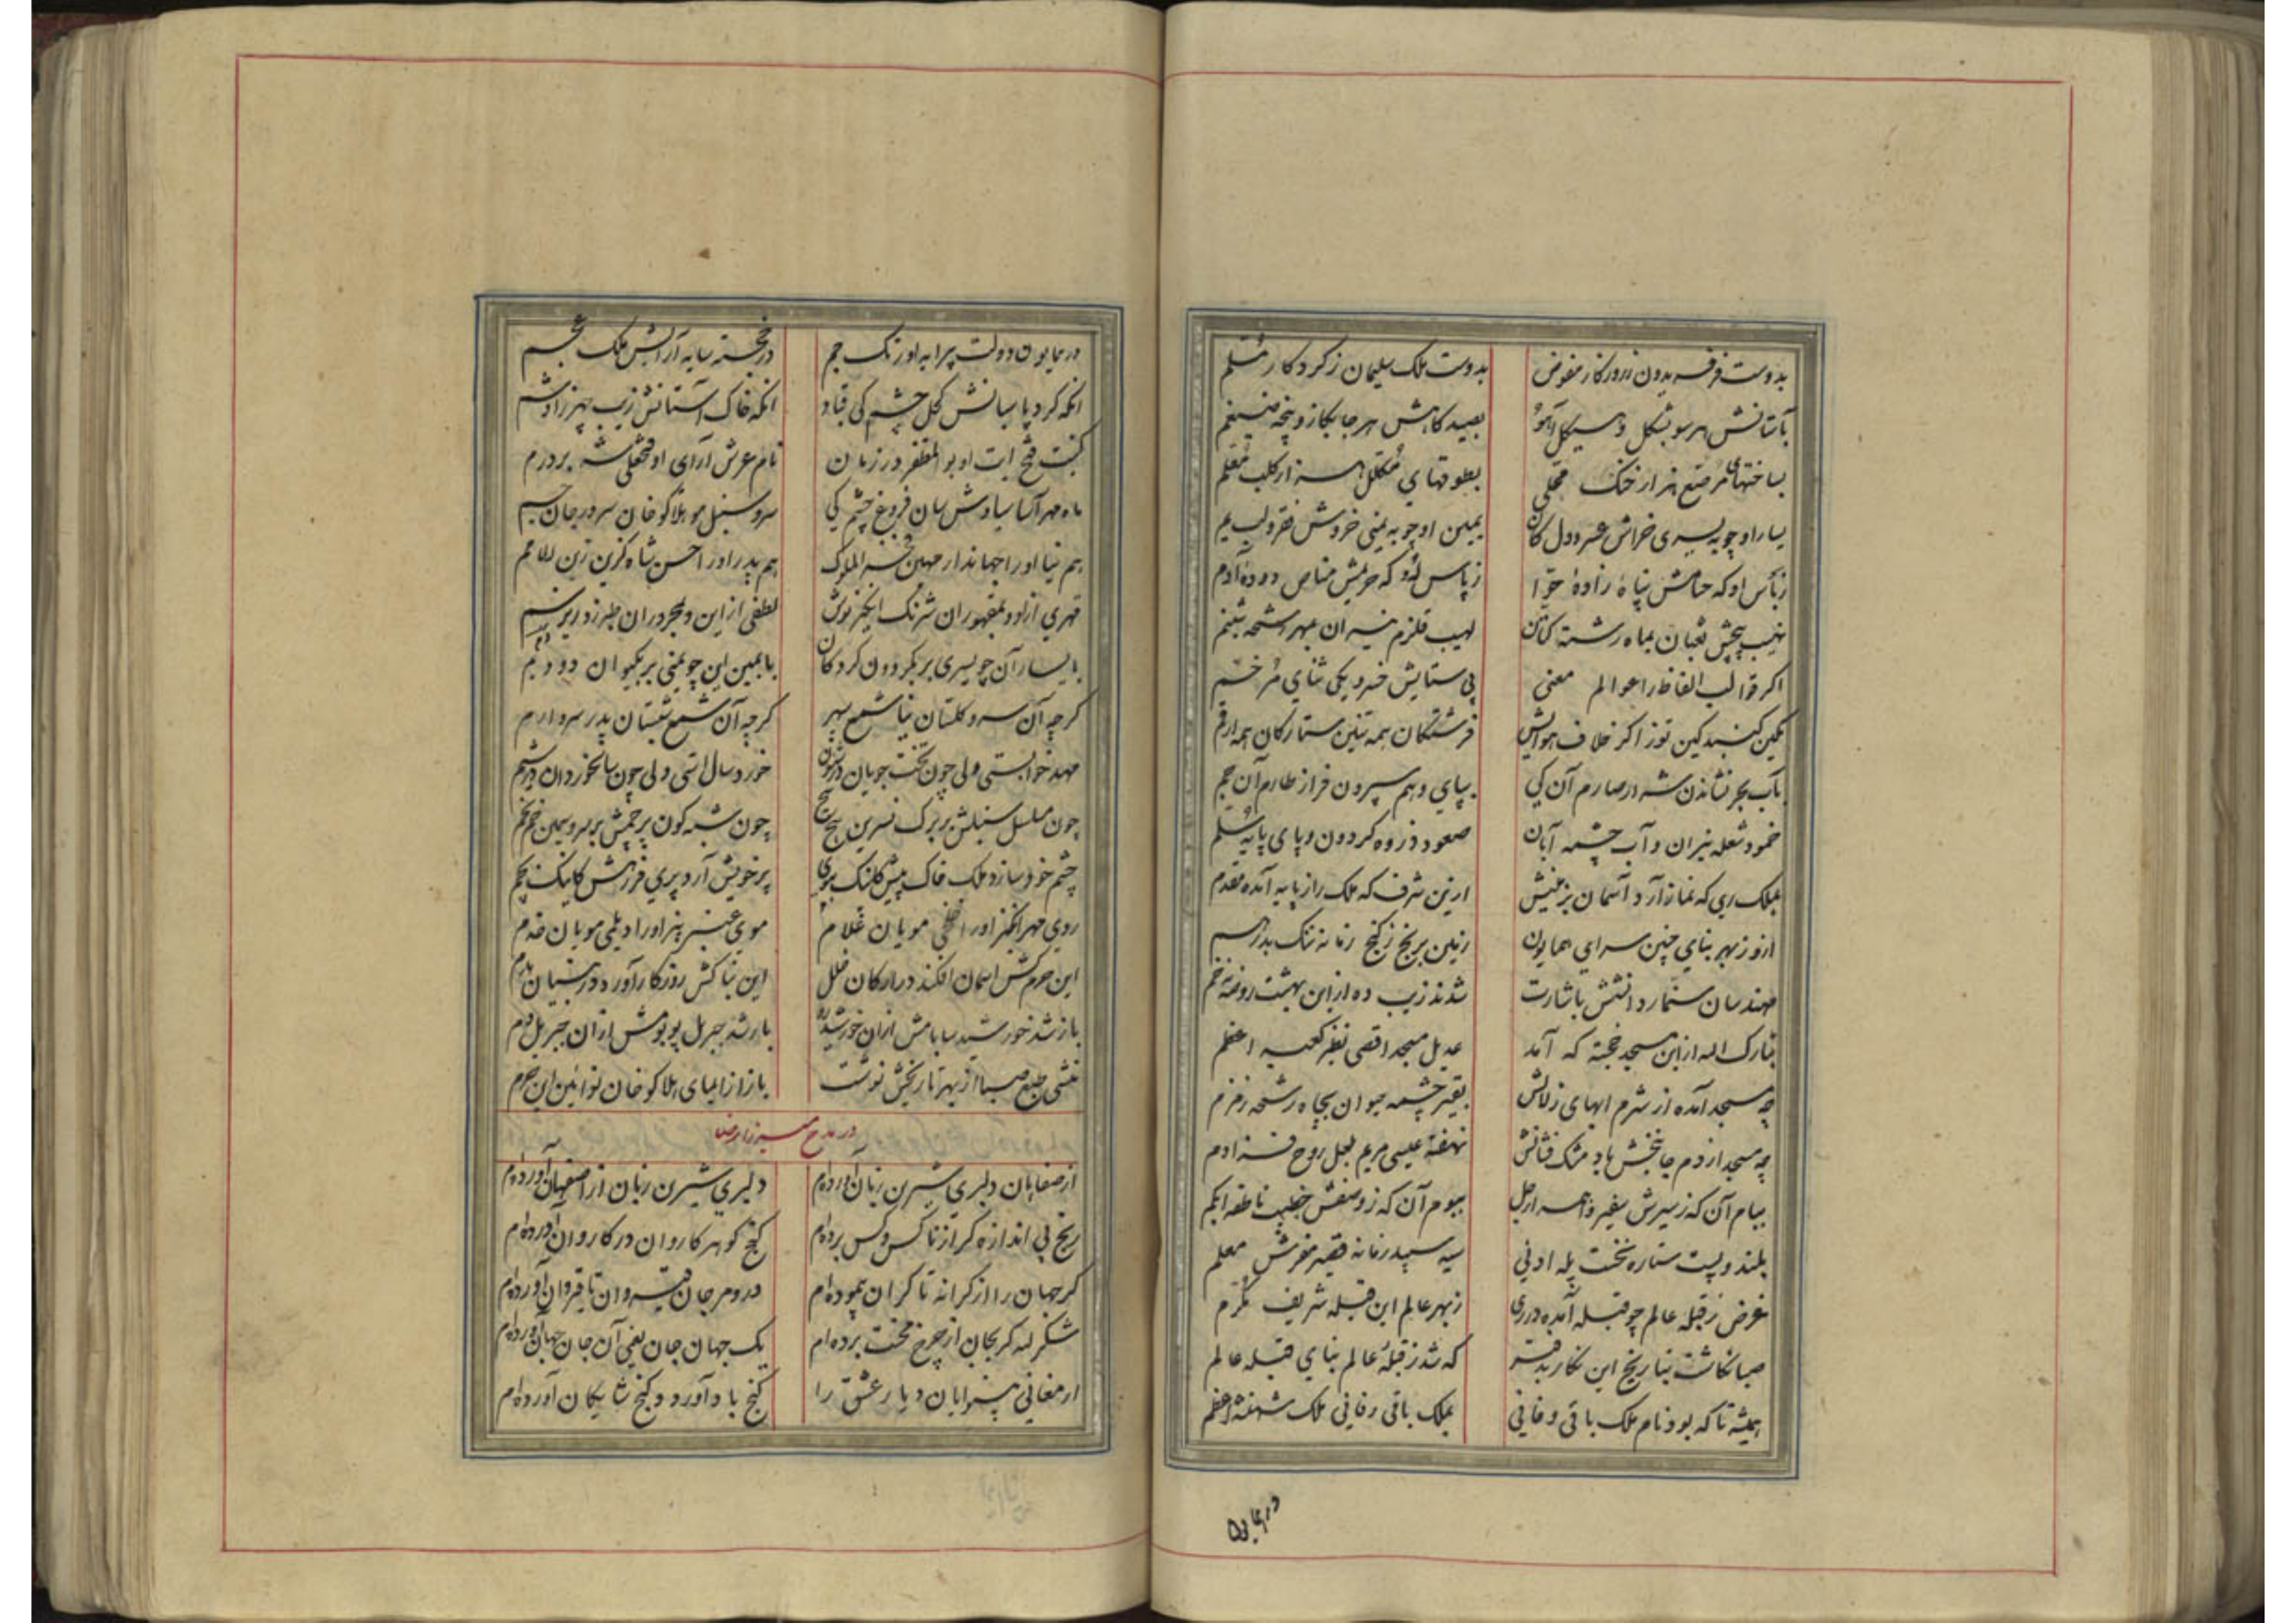 بدوست فر فریدون ز روزکار مفوض
بدوست ملک سلیمان ز کردکار مسلم
بآستانش هر سو بشکل و هیکل آهو
بصیدکاهش هر جا بکاز و پنجه ضیغم
بساختهای مرصع هزار خنک محلی
بطوقهای مکلل هزار کلب معلم
یسار او چو به یسری خراش عسر و دل کان
یمین او چو به یمنی خروش فقر و لب یم
ز بأس او که حمایش پناه زادهٔ حوا
ز پاس او که حریمش مناص دودهٔ آدم
نهیب پیچش ثعبان بماه رشته کتان
لهیب قلزم نیران بمهر رشحه شبنم
اکر قوالب الفاظ را عوالم معنی
پی ستایش خسرو یکی ثنای مفخم
نکین کنبد کین توز اکر خلاف هوایش
فرشتکان همه تنین ستارکان همه ارقم
بآب بحر نشاندن شه ار صارم آن کی
بپای وهم سپردن فراز طارم آن جم
خمود شعله نیران و آب چشمه آبان
صعود ذروه کردون و پای پایه سلم
بملک ری که نماز آرد آسمان بزمینش
ازین شرف که ملک را ز پایه آمده مقدم
ازو ز بهر بنای چنین سرای همایون
زمین برنج ز کنج زمانه تنک بدرهم
مهندسان سنمار دانشش باشارت
شدند زیب ده از این بهشت روضهٔ خرم
تبارک اله از این مسجد خجسته که آمد
عدیل مسجد اقصی نظیر کعبه اعظم
چه مسجد آمده از شرم ابهای زلالش
بقعر چشمه حیوان بچاه رشحه زمزم
چه مسجد از دم جانبخش باد مشک فشانش
نهفتهٔ عیسی مریم لعل روح فزا دم
ببام آن که ز سیرش سفیر واهمه ارجل
ببوم آن که ز وصفش خطیب ناطقه ابکم
بلند و پست ستاره نخست پله ادنی
سیه سپید زمانه قصیر مفرش معلم
غرض ز قبله عالم چو قبله آمده در ری
ز بهر عالم این قبله شریف مکرم
صبا نکاشت بتاریخ این نکار بدفتر
که شد ز قبلهٔ عالم بنای قبله عالم
همیشه تا که بود نام ملک باقی و فانی
بملک باقی و فانی ملک شهنشه اعظم
در همایون
در همایون دولت پیرایه اورنک جم
در خجسته سایه آرایش ملک عجم
انکه کرد پاسبانش کحل چشم کی قباد
انکه خاک آستانش زیب چهر زادشم
کنیت فتح ایت او بوالمظفر در زمان
نام عرش آرای او فتحعلی شه بر درم
ماه مهر آسا سیاوش سان فروغ چشم کی
سرو سنبل مو هلاکو خان سرور جان جم
هم نیا او را جهاندار مهین فخر الملوک
هم پدر او را حسن شاه کزین زین الامم
قهری از او و بمقهوران شرنک انکیز نوش
لطفی از این و بمجروران طبرزد ریز سم
با یسار آن چو یسری بر بکردون کرد کان
با یمین این چو یمنی بر بکیوان دود یم
کر چه آن سرو کلستان نیا شمع سپهر
کر چه آن شمع شبستان پدر سرو ارم
مهد خوابستی ولی چون تخت جویان در شئون
خورد سال استی ولی چون سالخوردان در شیم
چون مسلسل سنبلش بر برک نسرین پیچ پیچ
چون شبه کون پرچمش بر سرو سیمین خم بخم
چشم خود سازد ملک خاک پیش کاینک بپوی
پر خویش آرد پری فرش رهش کاینک بچم
روی مهر انکیز او را خلخی مویان غلام
موی عنبر بیز او را دیلمی مویان خدم
این حرم کش اسمان افکند در ارکان خلل
این بنا کش روزکار آورد در بنیان ندم
باز شد خورشید سا بامش از ان خورشید رو
باز شد جبریل پو بومش از ان جبریل دم
منشی طبع صبا از بهر تاریخش نوشت
باز از امیای هلاکو خان نو ائین این حرم
در مدح میرزا رضا
از صفاهان دلبری شیرین زبان آورده‌ام
دلبری شیرین زبان از اصفهان آورده‌ام
رنج بی اندازه کر از ناکس و کس برده‌ام
کنج کوهر کاروان در کاروان آورده‌ام
کر جهان را از کرانه تا کران پیموده‌ام
در و مرجان قیروان تا قیروان آورده‌ام
شکر لله کر بجان از چرخ محنت برده‌ام
یک جهان جان یعنی آن جان جهان آورده‌ام
ارمغانی بینوایان دیار عشق را
کنج باد آورد و کنج شایکان آورده‌ام